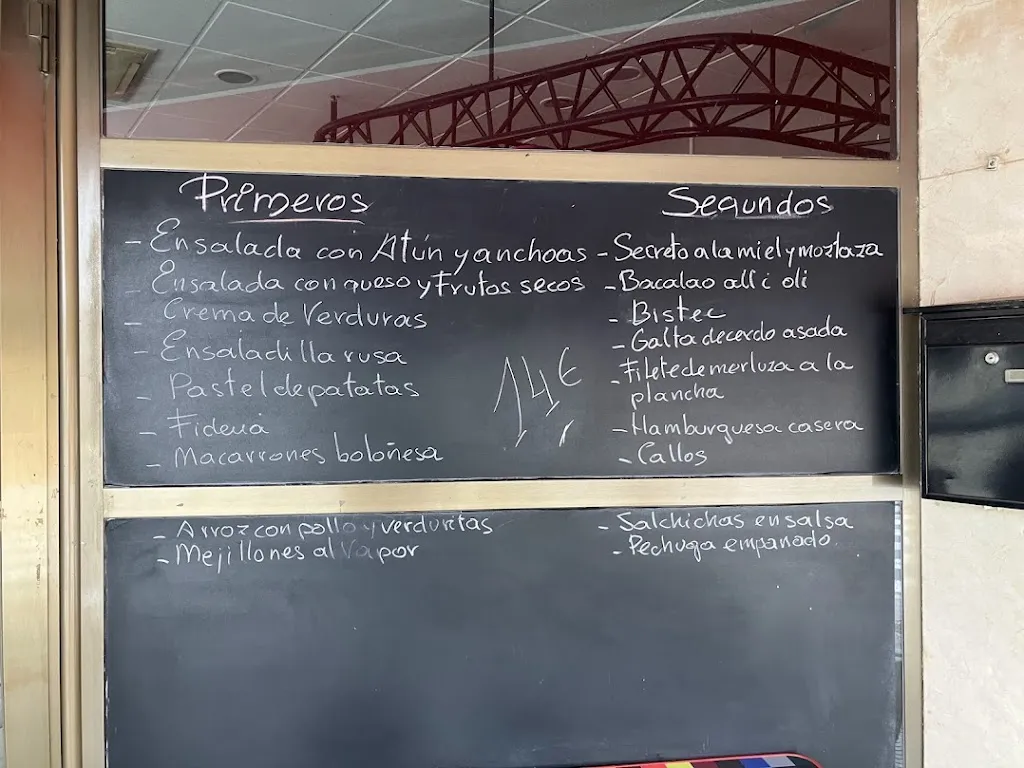 Primeros
- Ensalada con Atún y anchoas
- Ensalada con queso y Frutos secos
- Crema de Verduras
- Ensaladilla rusa
- Pastel de patatas
- Fideuá
- Macarrones boloñesa
- Arroz con pollo y verduritas
- Mejillones al vapor
14€
Segundos
- Secreto a la miel y moztaza
- Bacalao all i oli
- Bistec
- Galta de cerdo asada
- Filete de merluza a la
plancha
- Hamburguesa casera
- Callos
- Salchichas en salsa
- Pechuga empanado